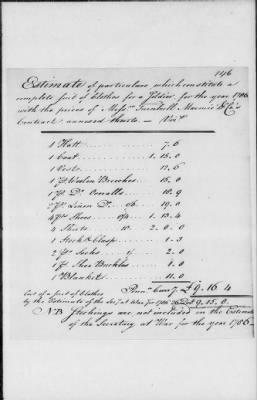 146
Estimate of particulars which constitute a
complete suit of Clothes for a Soldier, for the year 1786
with the prices of Messrs Turnbull Marmie & Co's
Contract annexed thereto. — Vizt
1 Hatt 7.6
1 Coat 1.15.0
1 Vest 11.6
1 Pr Woolen Breeches 15.0
1 Pr Do Overalls 10.9
2 Pr Linen Do 9/6 19.0
4 Prs Shoes 8/4 1.13.4
4 Shirts 10. 2.0.0
1 Stock & Clasp 1.3
2 Pr Socks 2.0
1 Pr Shoe Buckles 1.0
1 Blanket 11.0
Cost of a suit of Clothes Penna Curry £9.16.4
by the Estimate of the Secy at War for 1786 £9.15.0
NB Stockings are not included in the Estimate
of the Secretary at War for the year 1786